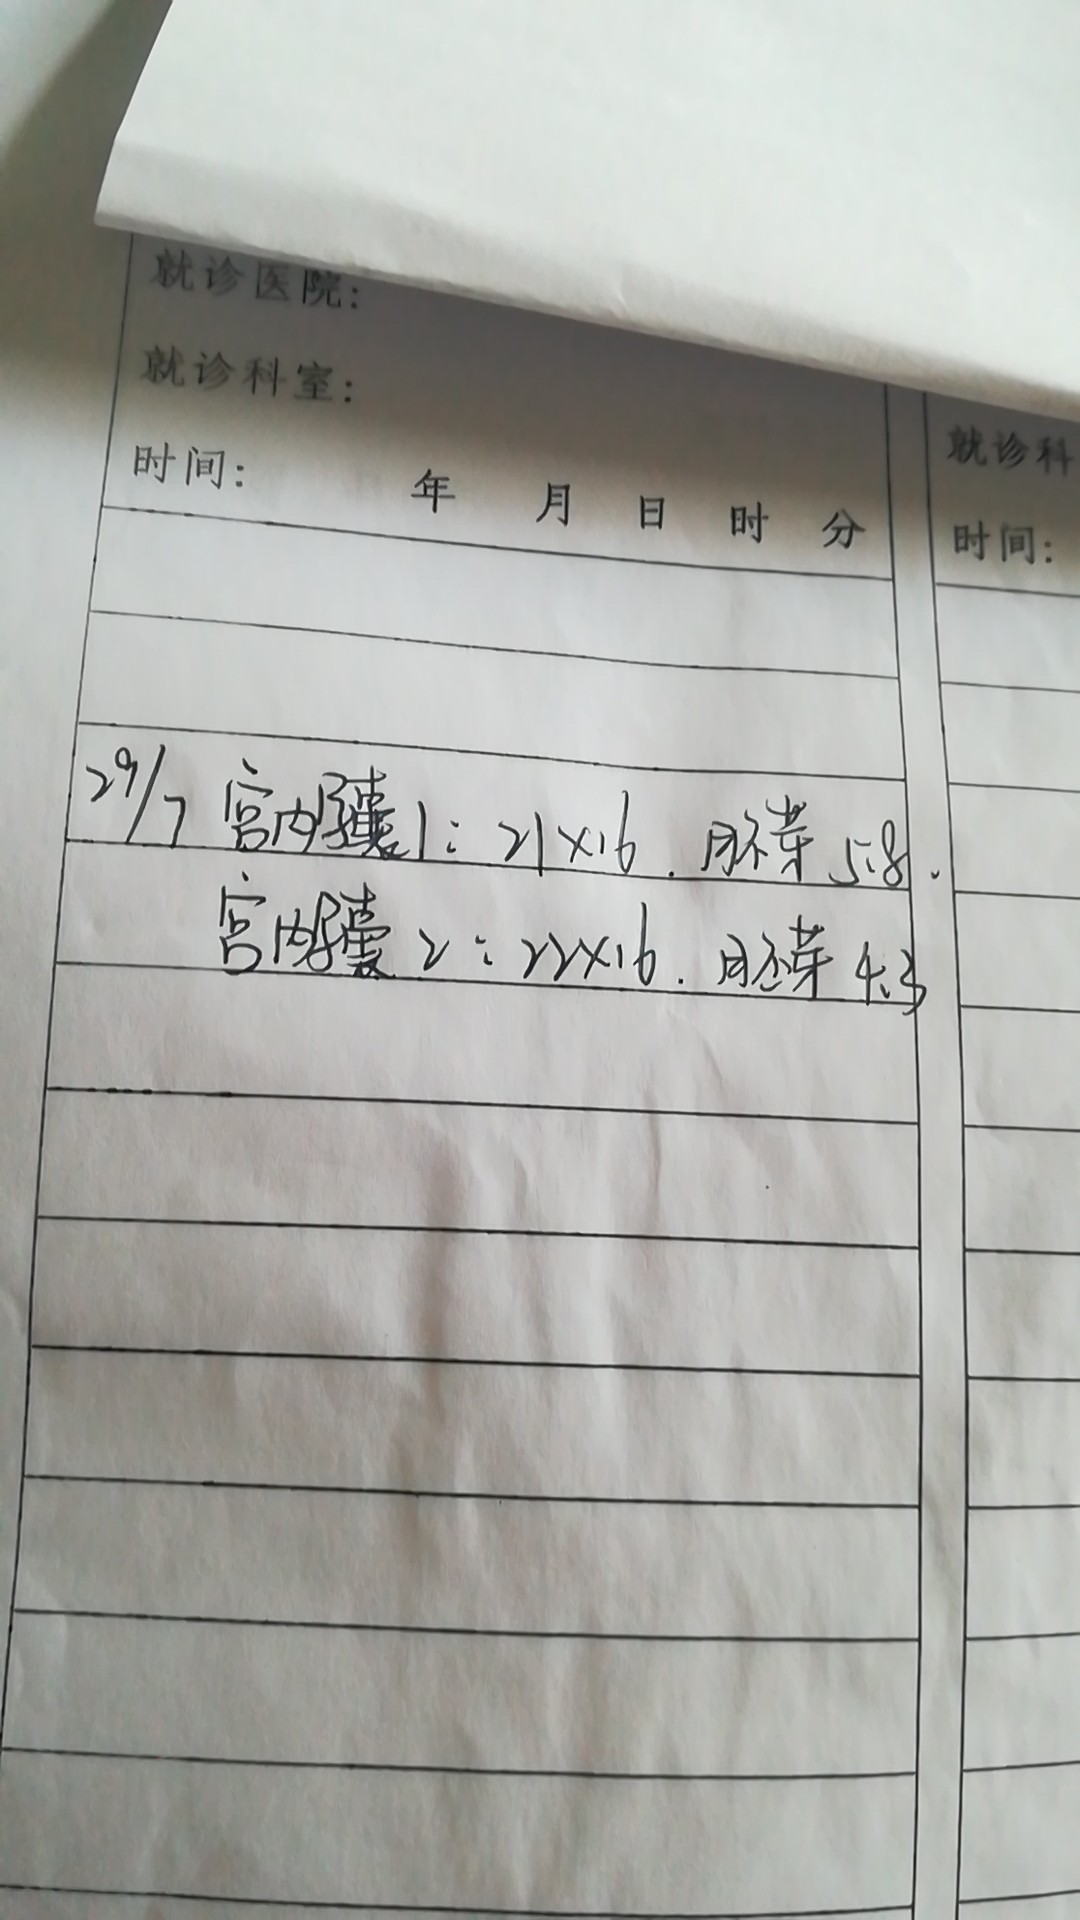 就诊医院:
就诊科室:
时间: 年 月 日 时 分
29/7 宫内孕囊1: 21×16. 胚芽 5.8.
宫内孕囊2: 22×16. 胚芽 4.3
就诊科
时间: